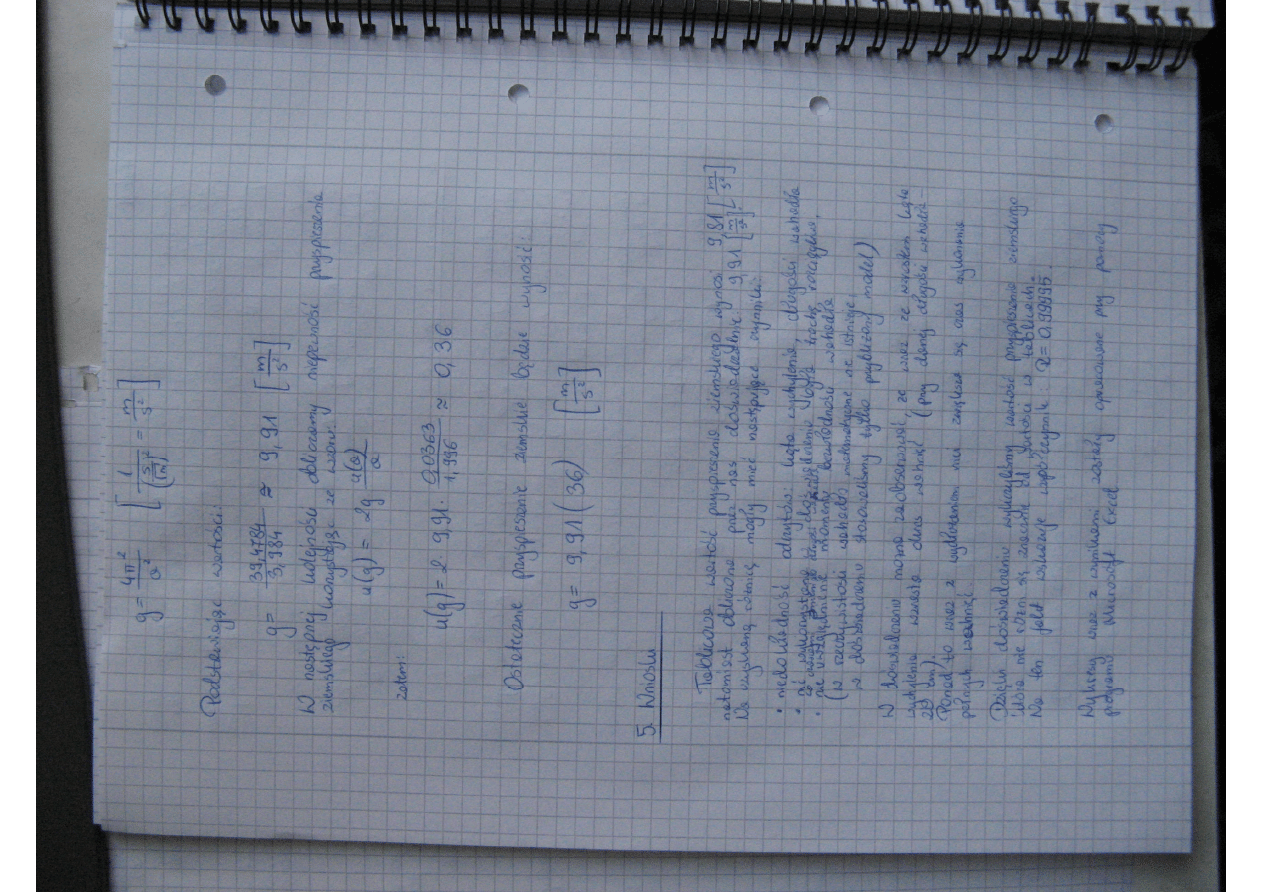 g = 4π² / a² [ 1 / (s/√m)² = m/s² ]
Podstawiając wartości:
g = 39,4784 / 3,984 ≈ 9,91 [m/s²]
W następnej kolejności obliczamy niepewność przyspieszenia
ziemskiego korzystając ze wzoru:
u(g) = 2g u(a)/a
zatem:
u(g) = 2 · 9,91 · 0,0363 / 1,996 ≈ 0,36
Ostatecznie przyspieszenie ziemskie będzie wynosić:
g = 9,91 (36) [m/s²]
5. Wnioski
Tablicowa wartość przyspieszenia ziemskiego wynosi 9,81 [m/s²]
natomiast obliczone przez nas doświadczalnie 9,91 [m/s²].
Na uzyskaną różnicę mogły mieć następujące czynniki:
• niedokładność odczytów: kąta wychylenia, długości wahadła
• nić
• nie uwzględnienie momentu bezwładności wahadła
(w rzeczywistości wahadło matematyczne nie istnieje,
w doświadczeniu stosowaliśmy tylko przybliżony model)
W doświadczeniu można zaobserwować, że wraz ze wzrostem kąta
wychylenia wzrasta okres wahań (przy danej długości wahadła -
Ponadto wraz z wydłużeniem nici zwiększa się czas wykonania
pełnych wahnięć.
Dzięki doświadczeniu wyliczyliśmy wartość przyspieszenia ziemskiego
która nie różni się znacznie od wartości w tablicach.
Na ten fakt wskazuje współczynnik R = 0,99995.
Wykresy wraz z wynikami zostały opracowane przy pomocy
programu Microsoft Excel